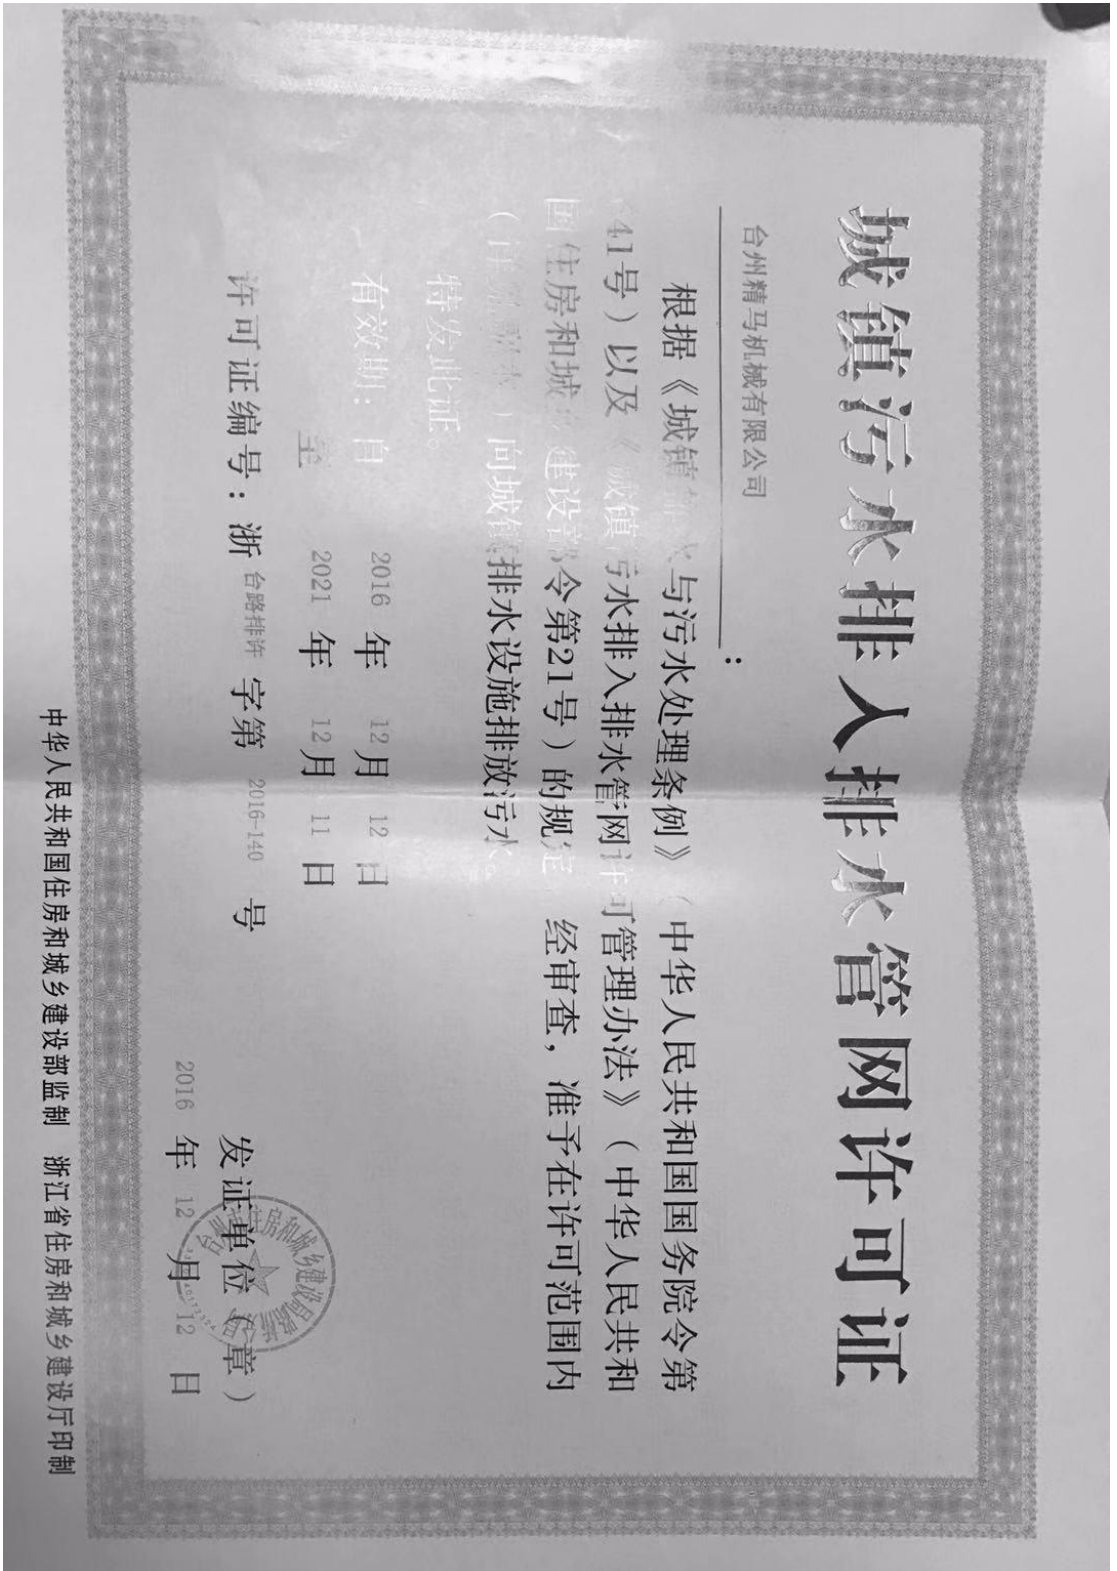 城镇污水排入排水管网许可证
台州精马机械有限公司
：
根据《城镇排水与污水处理条例》（中华人民共和国国务院令第
641号）以及《城镇污水排入排水管网许可管理办法》（中华人民共和
国住房和城乡建设部令第21号）的规定 经审查，准予在许可范围内
（详见副本）向城镇排水设施排放污水。
特发此证。
有效期：自 2016 年 12 月 12 日
至 2021 年 12 月 11 日
许可证编号：浙 台路排许 字第 2016-140 号
发证单位（章）
2016 年 12 月 12 日
中华人民共和国住房和城乡建设部监制 浙江省住房和城乡建设厅印制